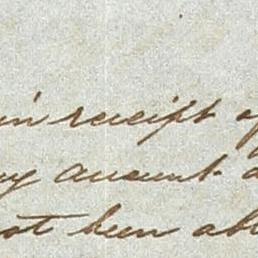 in receipt of
my account a
not been abl